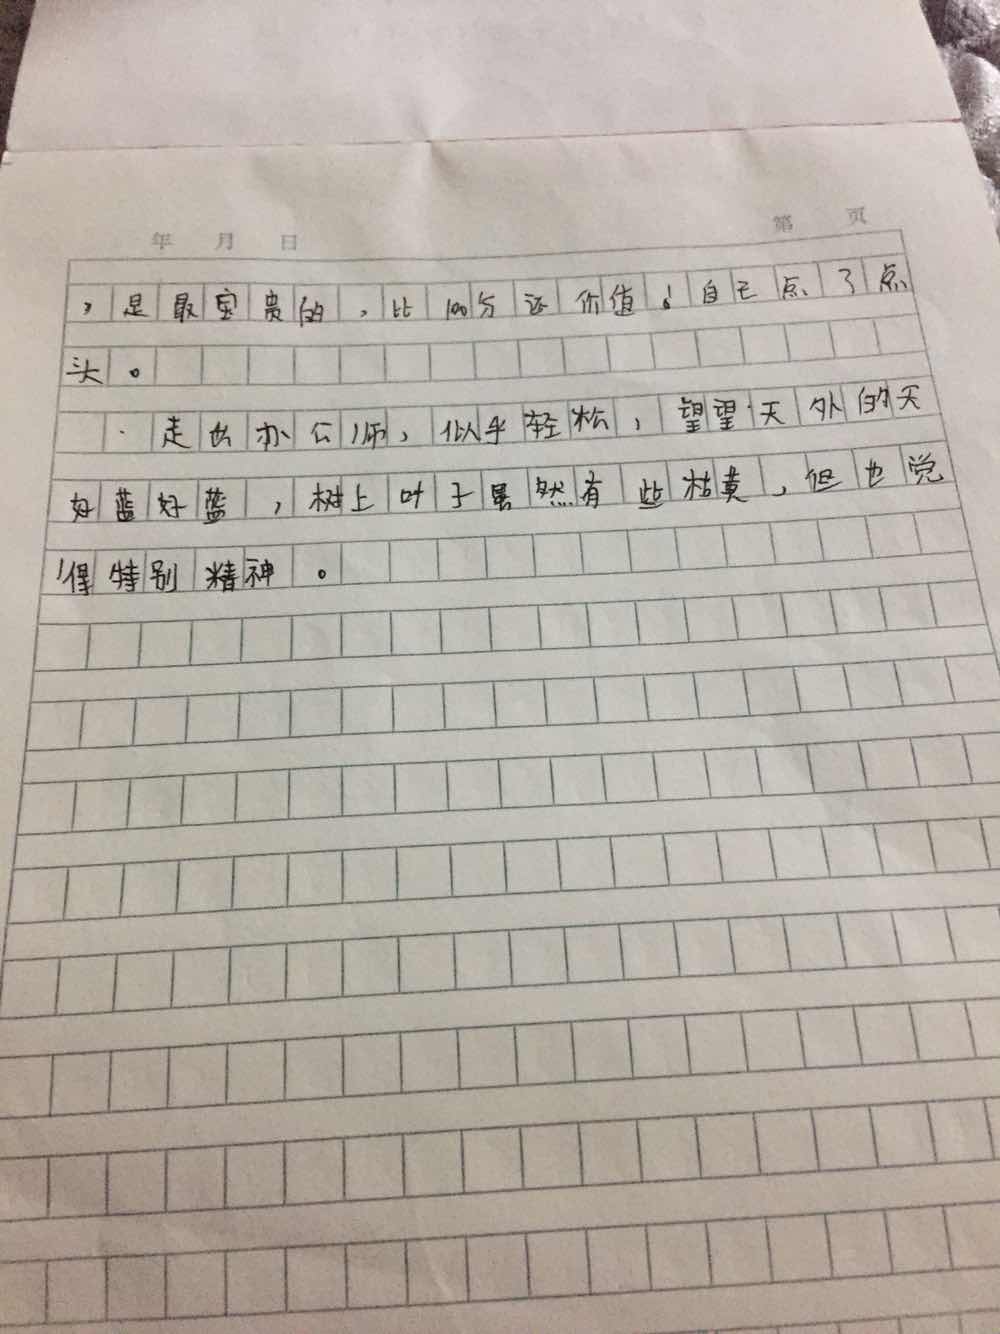 年 月 日 第 页
，是最宝贵的，比100分还价值！自己点了点
头。
走出办公师，似乎轻松，望望天外的天
好蓝好蓝，树上叶子虽然有些枯黄，但也觉
得特别精神。